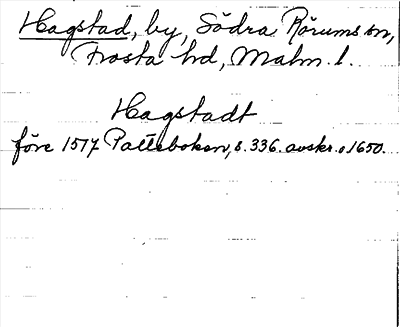 Hagstad, by, Södra Rörums sn,
Frosta hd, Malm. l.
Hagstadt
före 1517 Palteboken, s. 336. avskr. o 1650.